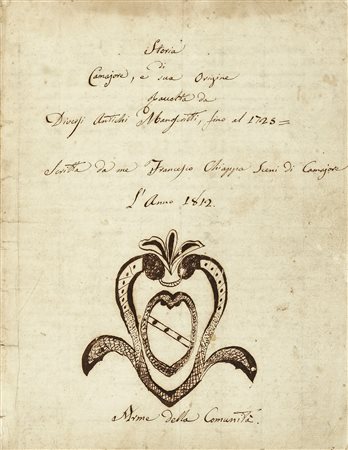 Storia
di
Camajore, e sua Origine
ricavata da
Diversi Antichi Manoscritti, fino al 1728 =
Scritta da me Francesco Chiappa Sceni di Camajore
L'Anno 1812.
Arme della Comunità.